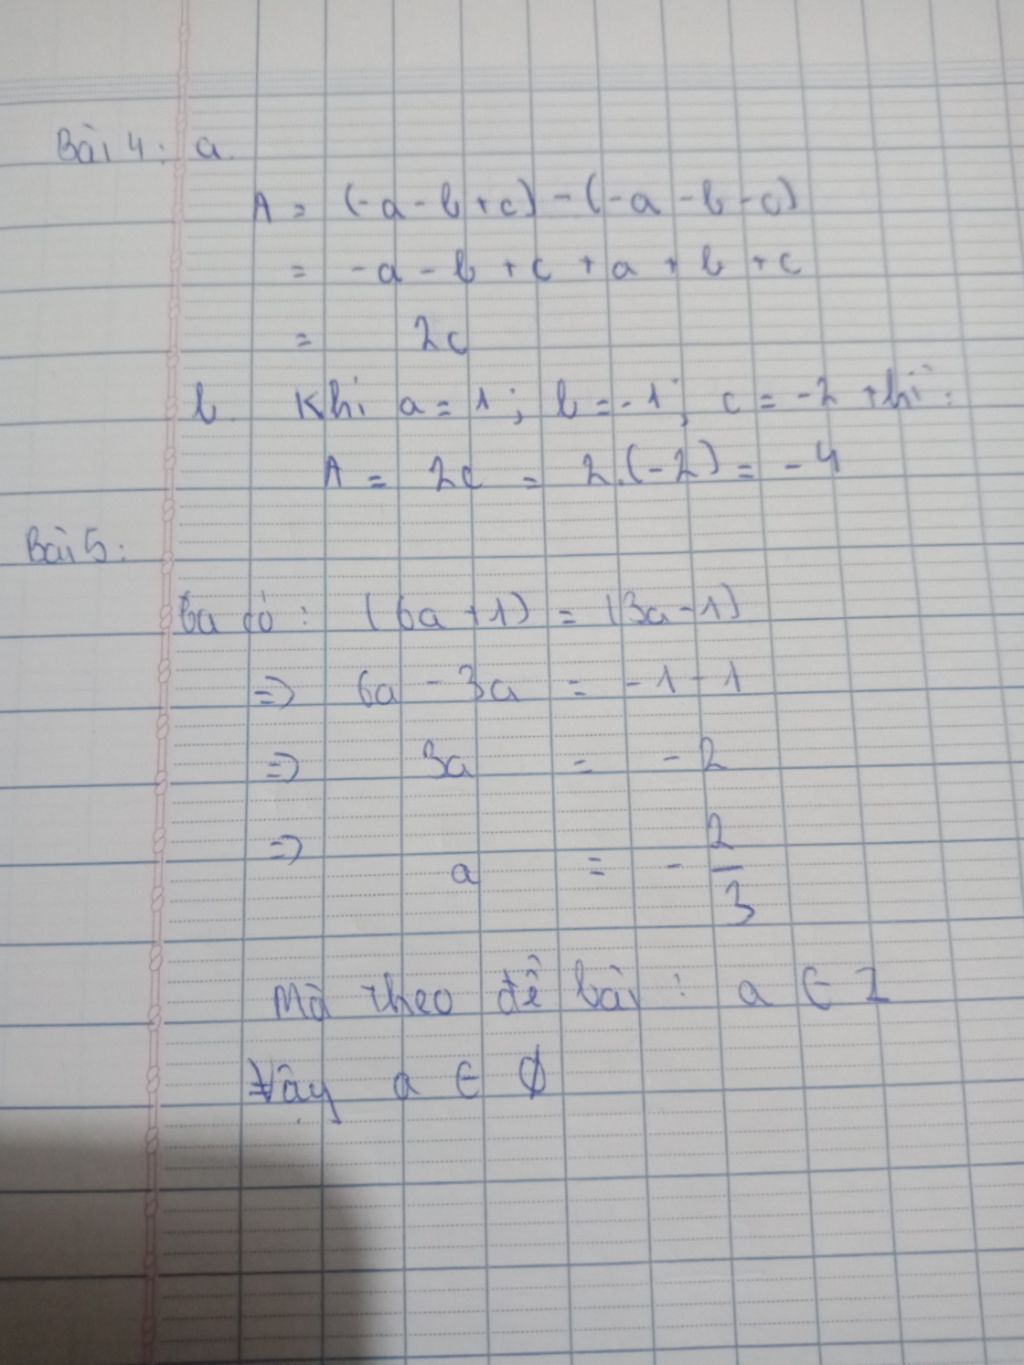 Bài 4: a.
A = (-a - b + c) - (-a - b - c)
= -a - b + c + a + b + c
= 2c
b. Khi a = 1; b = -1; c = -2 thì:
A = 2c = 2.(-2) = -4
Bài 5:
có: (6a + 1) = (3a - 1)
=> 6a - 3a = -1 - 1
=> 3a = -2
=> a = -2/3
Mà theo đề bài: a ∈ Z
Vậy a ∈ ∅